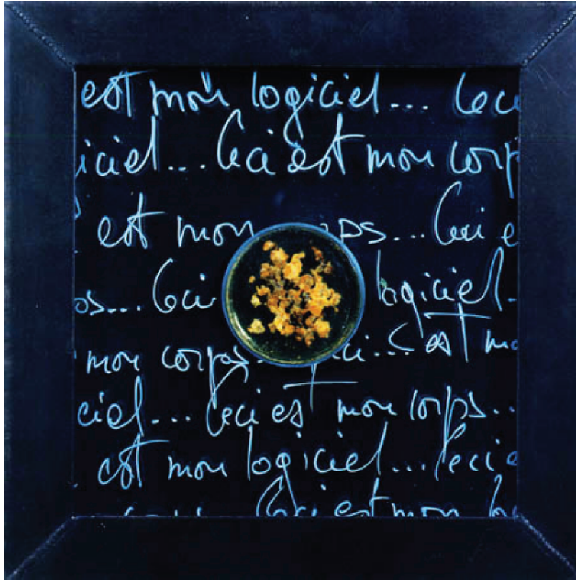 est mon logiciel... Ceci
iciel... Ceci est mon corp
est mon ps... Ceci e
ps... Ceci logiciel.
mon corps. ci... est mo
ciel... Ceci es mon corps..
est mon logiciel... Ceci e
Ceci est mon lo